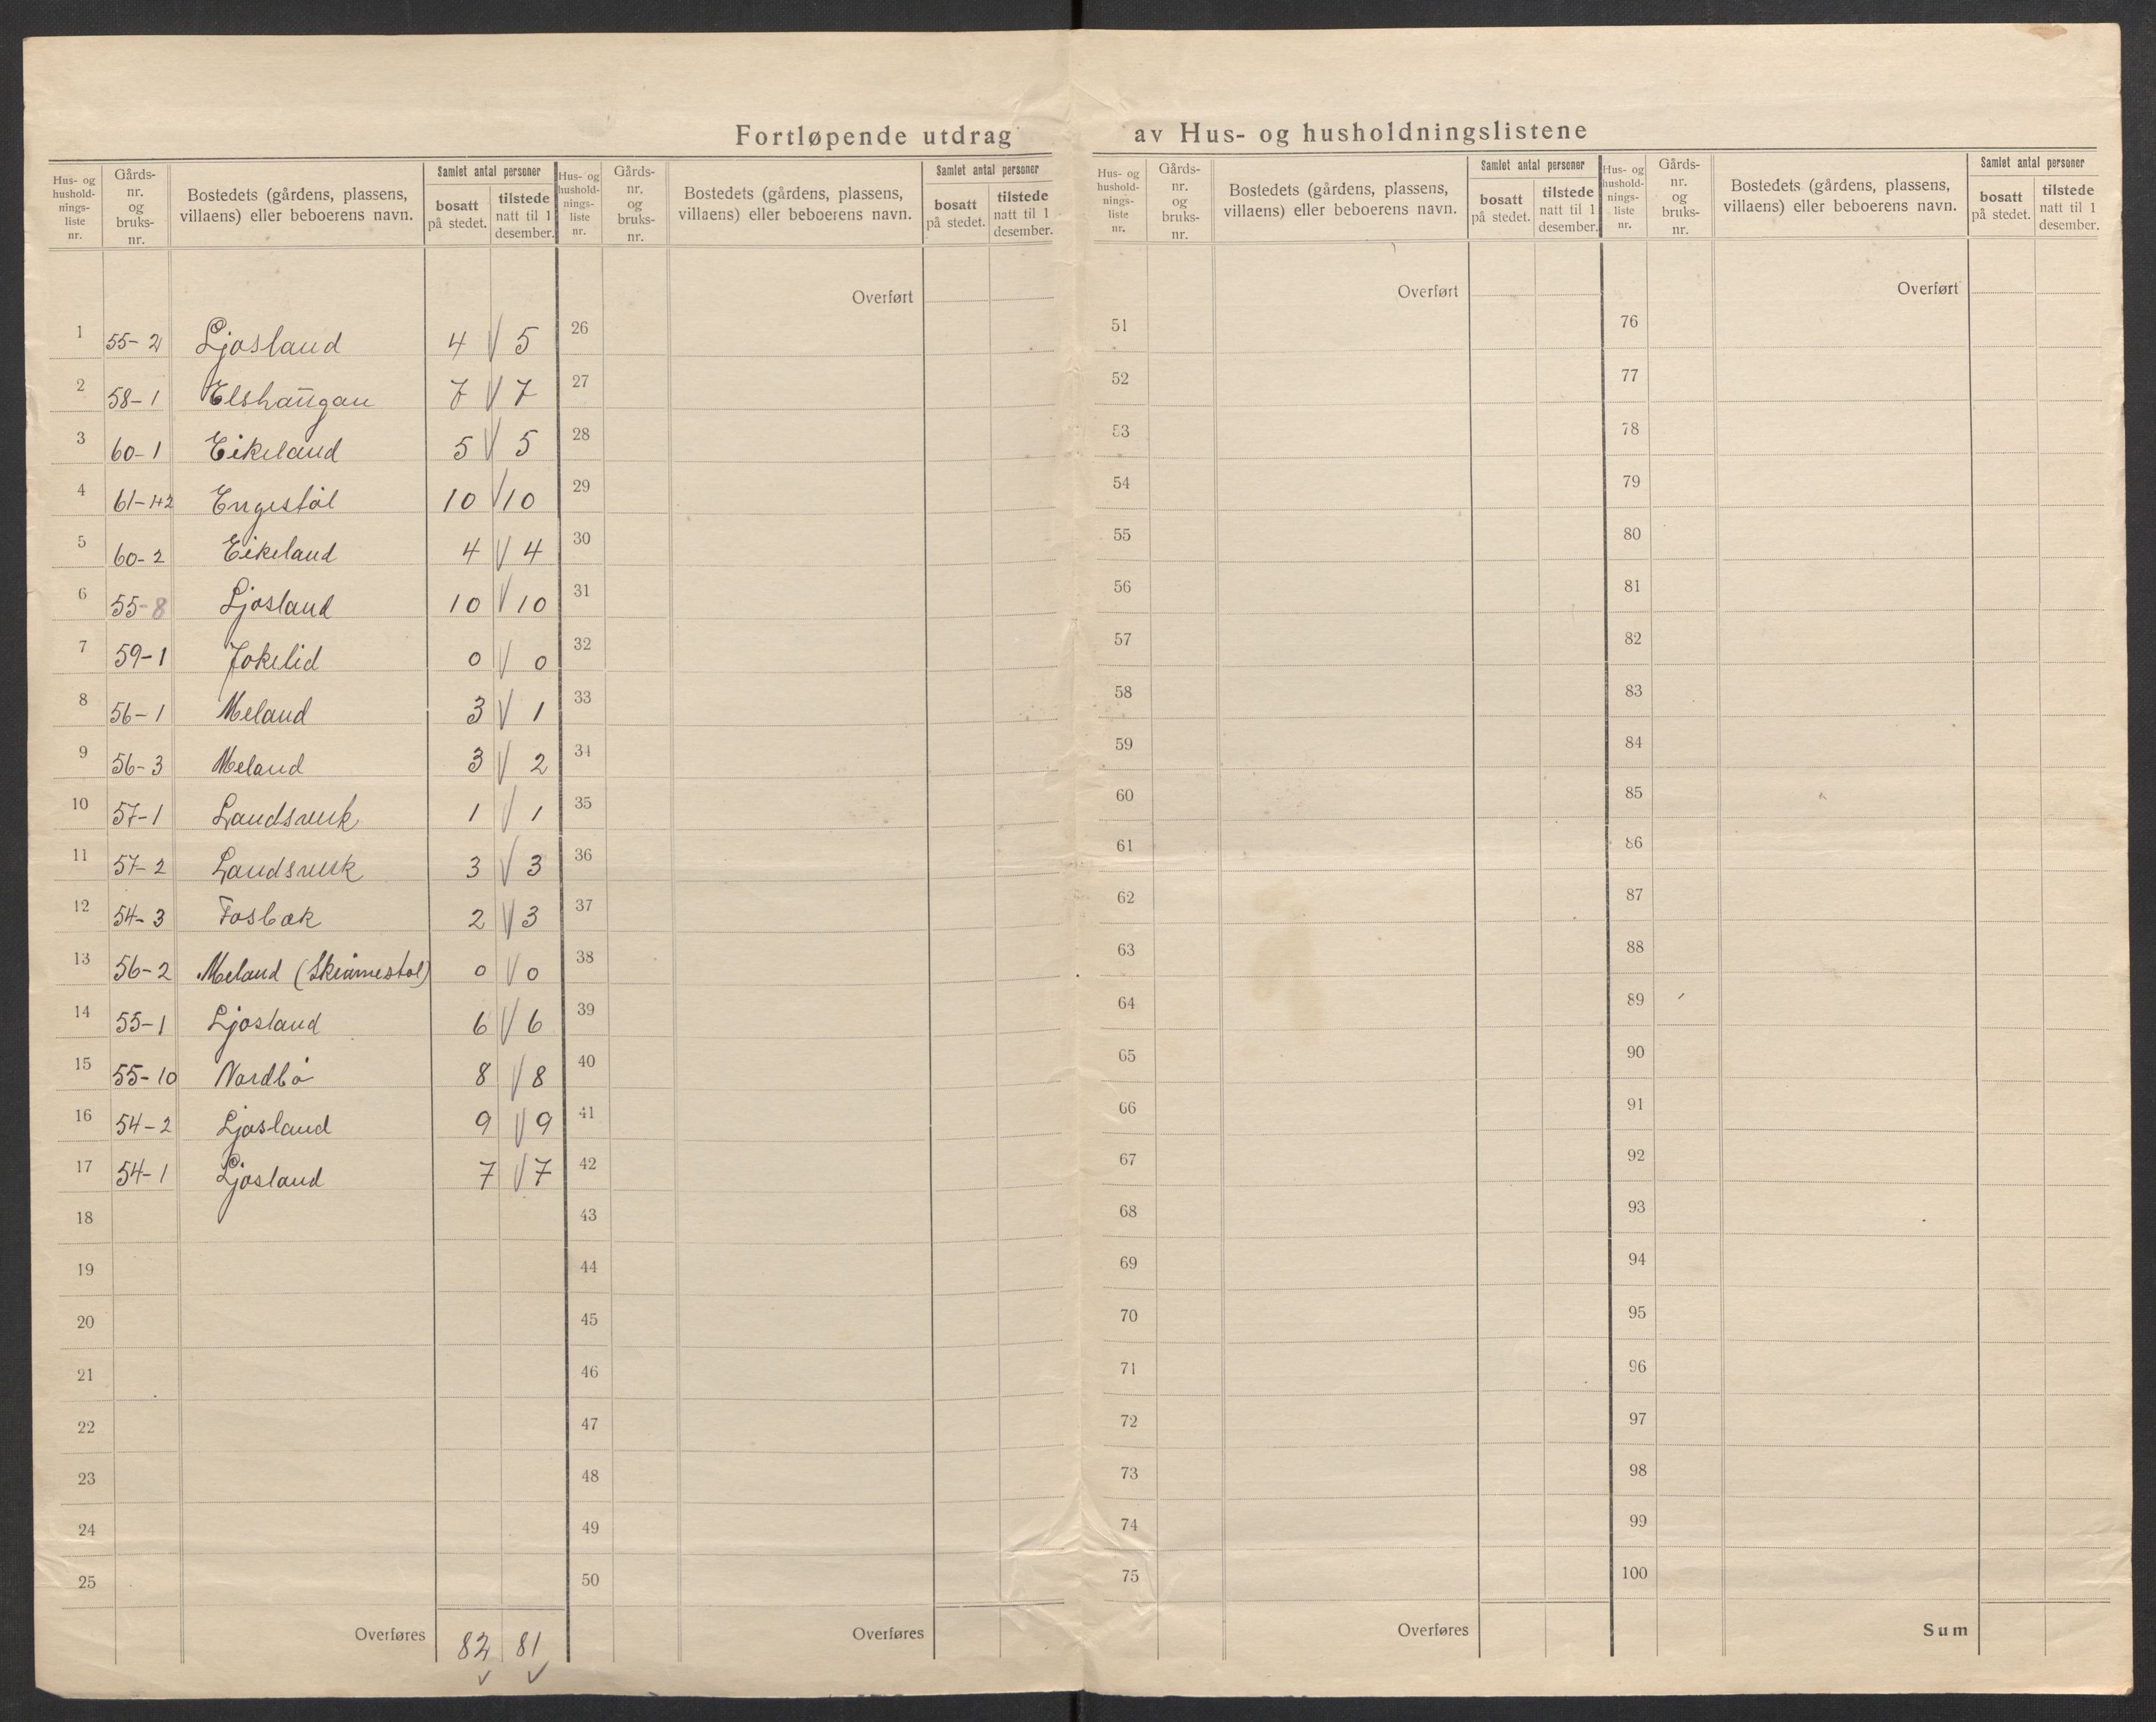 Fortløpende utdrag av Hus- og husholdningslistene
Hus- og hushold- nings- liste nr. | Gårds- nr. og bruks- nr. | Bostedets (gårdens, plassens, villaens) eller beboerens navn. | Samlet antal personer | bosatt på stedet. | tilstede natt til 1 desember.
Hus- og hushold- nings- liste nr. | Gårds- nr. og bruks- nr. | Bostedets (gårdens, plassens, villaens) eller beboerens navn. | Samlet antal personer | bosatt på stedet. | tilstede natt til 1 desember.
Hus- og hushold- nings- liste nr. | Gårds- nr. og bruks- nr. | Bostedets (gårdens, plassens, villaens) eller beboerens navn. | Samlet antal personer | bosatt på stedet. | tilstede natt til 1 desember.
Hus- og hushold- nings- liste nr. | Gårds- nr. og bruks- nr. | Bostedets (gårdens, plassens, villaens) eller beboerens navn. | Samlet antal personer | bosatt på stedet. | tilstede natt til 1 desember.
Overført Overført Overført
1 55-2 Ljosland 4 √ 5 26 51 76
2 58-1 Elshaugan 7 √ 7 27 52 77
3 60-1 Eikeland 5 √ 5 28 53 78
4 61-1+2 Engestøl 10 √ 10 29 54 79
5 60-2 Eikeland 4 √ 4 30 55 80
6 55-8 Ljosland 10 √ 10 31 56 81
7 59-1 Jokelid 0 √ 0 32 57 82
8 56-1 Meland 3 √ 1 33 58 83
9 56-3 Meland 3 √ 2 34 59 84
10 57-1 Landsverk 1 √ 1 35 60 85
11 57-2 Landsverk 3 √ 3 36 61 86
12 54-3 Fosbæk 2 √ 3 37 62 87
13 56-2 Meland 0 √ 0 38 63 88
14 55-1 Ljosland 6 √ 6 39 64 89
15 55-10 Nordbø 8 √ 8 40 65 90
16 54-2 Ljosland 9 √ 9 41 66 91
17 54-1 Ljosland 7 √ 7 42 67 92
18 43 68 93
19 44 69 94
20 45 70 95
21 46 71 96
22 47 72 97
23 48 73 98
24 49 74 99
25 50 75 100
Overføres 82 81 Overføres Overføres Sum
√ √